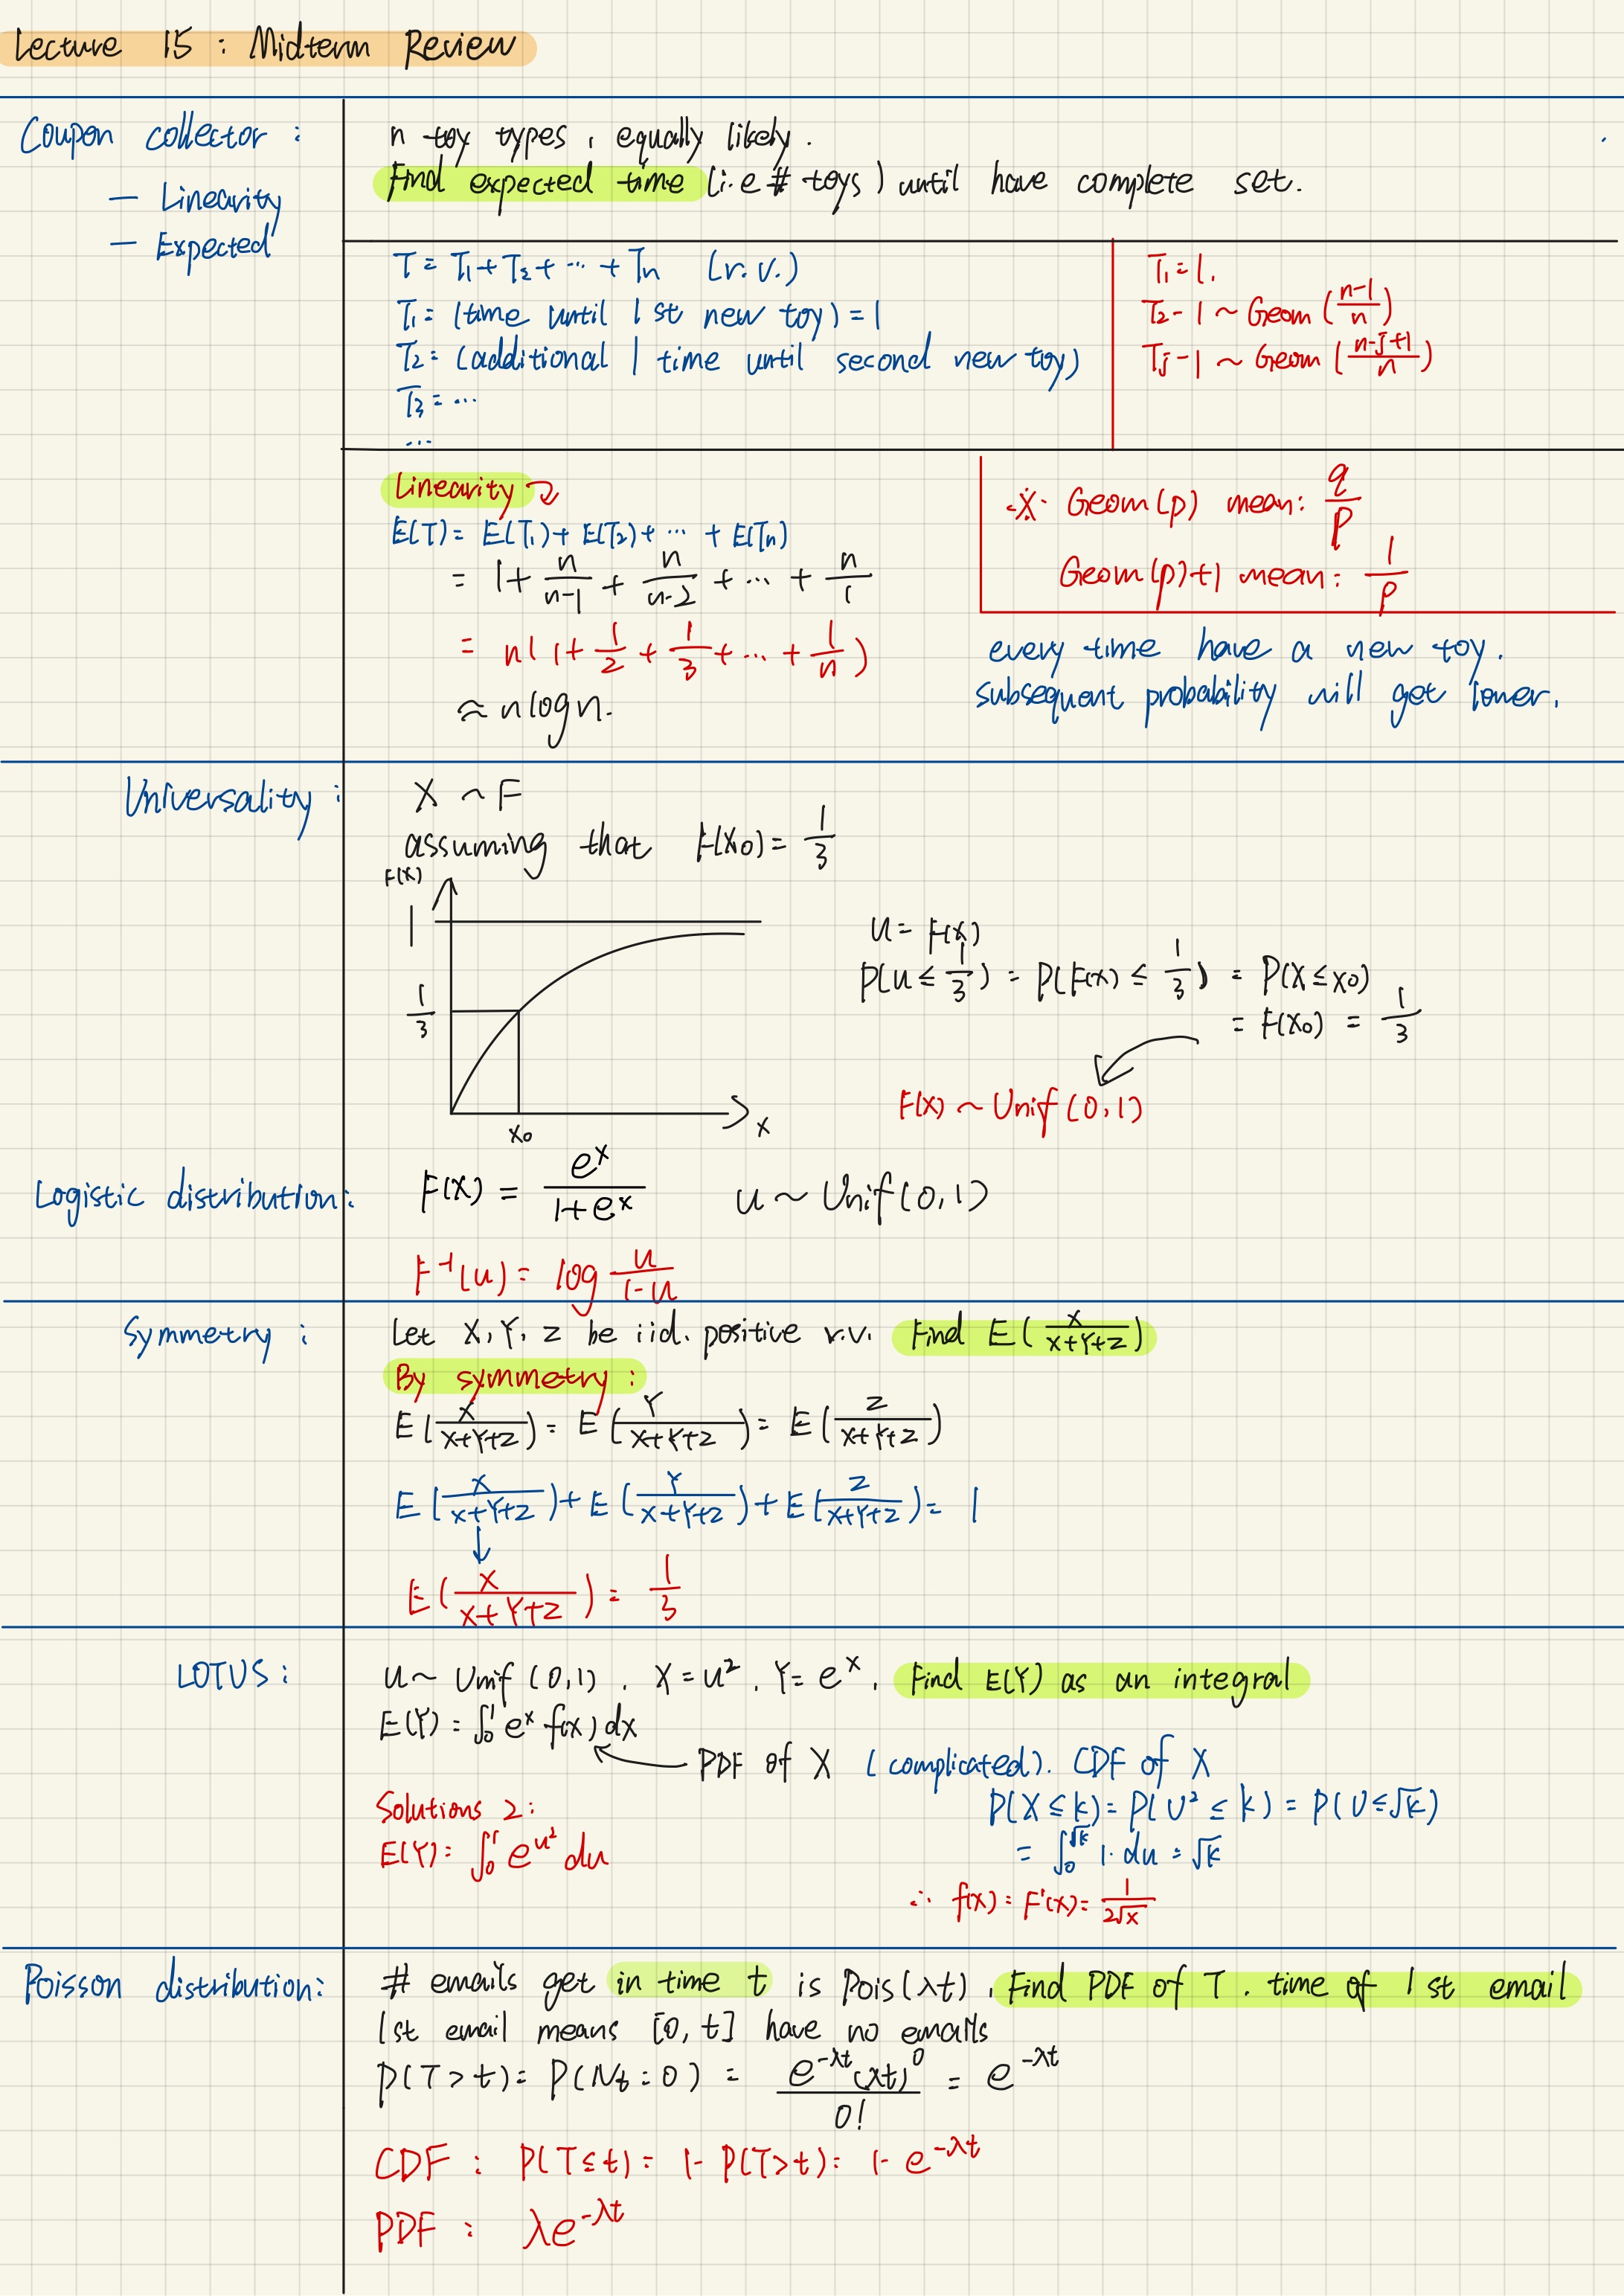 Lecture 15 : Midterm Review
Coupon collector :
— Linearity
— Expected
n toy types , equally likely .
Find expected time (i.e # toys ) until have complete set .
T = T₁ + T₂ + ⋯ + Tn (r.v.)
T₁ = (time until 1 st new toy) = 1
T₂ = (additional 1 time until second new toy)
T₃ = ⋯
⋯
T₁ = 1.
T₂ - 1 ~ Geom ( (n-1)/n )
Tj - 1 ~ Geom ( (n-j+1)/n )
Linearity
E(T) = E(T₁) + E(T₂) + ⋯ + E(Tn)
= 1 + n/(n-1) + n/(n-2) + ⋯ + n/1
= n( 1 + 1/2 + 1/3 + ⋯ + 1/n )
≈ n log n.
※ Geom(p) mean: q/p
Geom(p)+1 mean: 1/p
every time have a new toy .
subsequent probability will get lower .
Universality :
X ~ F
assuming that F(x₀) = 1/3
F(x)
1
1/3
x₀
x
u = F(x)
P( u ≤ 1/3 ) = P( F(x) ≤ 1/3 ) = P(X ≤ x₀)
= F(x₀) = 1/3
F(x) ~ Unif (0,1)
Logistic distribution :
F(x) = eˣ/(1+eˣ) u ~ Unif (0,1)
F⁻¹(u) = log u/(1-u)
Symmetry :
Let X, Y, Z be iid. positive r.v. Find E( X/(X+Y+Z) )
By symmetry :
E( X/(X+Y+Z) ) = E( Y/(X+Y+Z) ) = E( Z/(X+Y+Z) )
E( X/(X+Y+Z) ) + E( Y/(X+Y+Z) ) + E( Z/(X+Y+Z) ) = 1
E( X/(X+Y+Z) ) = 1/3
LOTUS :
u ~ Unif (0,1) . X = u² . Y = eˣ . Find E(Y) as an integral
E(Y) = ∫₀¹ eˣ f(x) dx
PDF of X (complicated). CDF of X
P(X ≤ k) = P( U² ≤ k ) = P( U ≤ √k )
= ∫₀^√k 1· du = √k
∴ f(x) = F'(x) = 1/(2√x)
Solutions 2 :
E(Y) = ∫₀¹ e^(u²) du
Poisson distribution :
# emails get in time t is Pois(λt) . Find PDF of T . time of 1 st email
1st email means [0, t] have no emails
P(T > t) = P( Nt = 0 ) = e^(-λt) (λt)⁰ / 0! = e^(-λt)
CDF : P(T ≤ t) = 1- P(T > t) = 1- e^(-λt)
PDF : λe^(-λt)